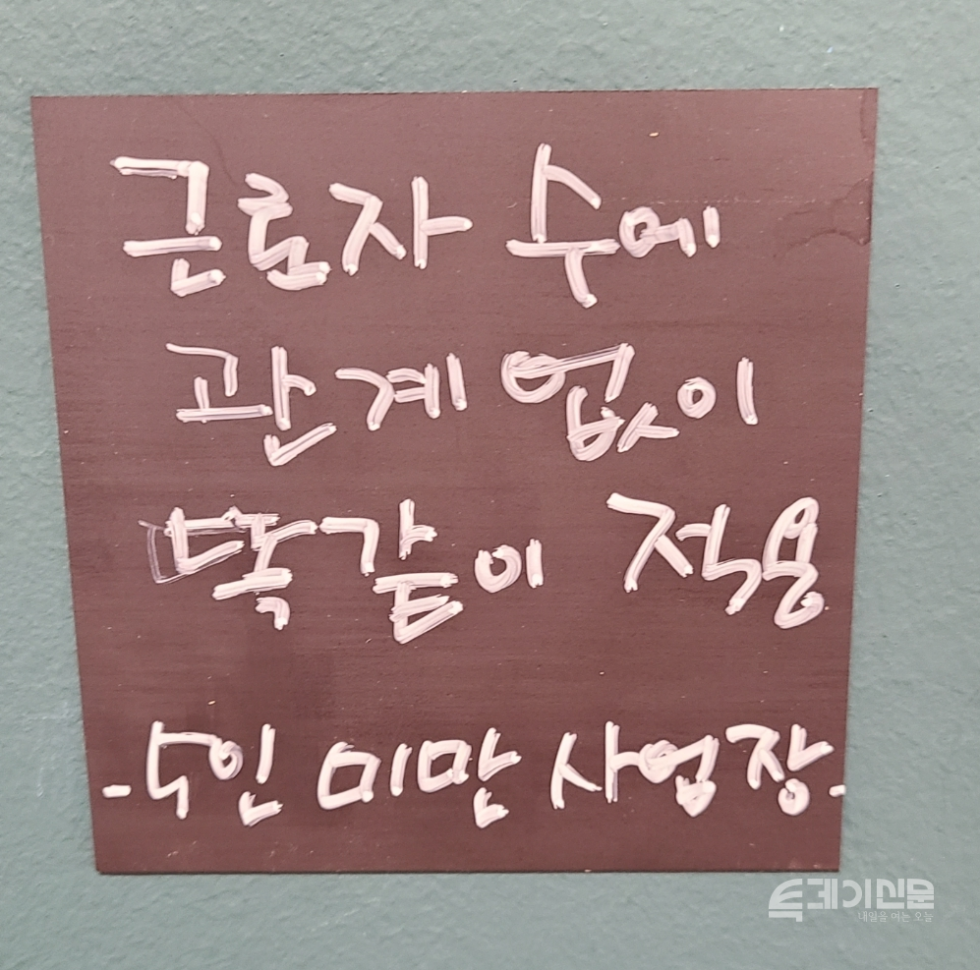 근로자 수에
관계없이
똑같이 적용
-5인 미만 사업장-
투데이신문
내일을 여는 오늘